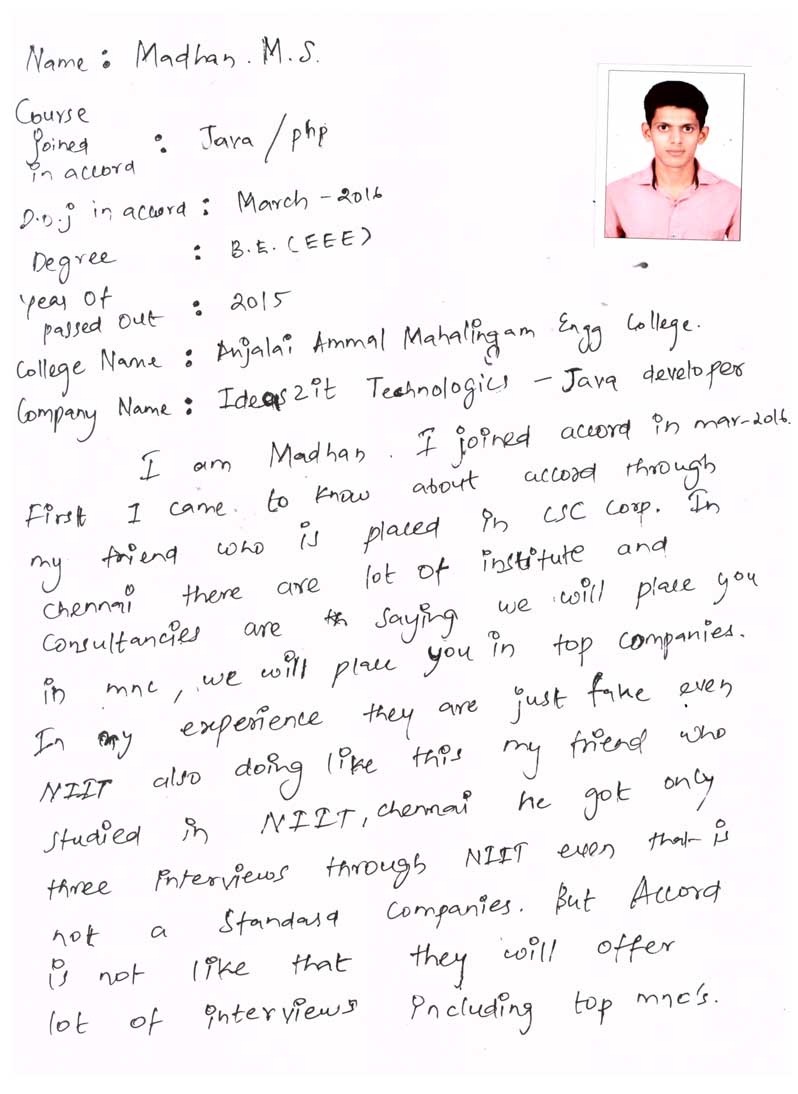 Name : Madhan. M.S.
Course
joined
in accord : Java / php
D.O.j in accord : March - 2016
Degree : B.E. (EEE)
Year Of
passed out : 2015
College Name : Anjalai Ammal Mahalingam Engg College.
Company Name : Ideas2it Technologies - Java developer
I am Madhan. I joined accord in mar-2016.
First I came to know about accord through
my friend who is placed in CSC Corp. In
chennai there are lot of institute and
Consultancies are saying we will place you
in mnc, we will place you in top companies.
In my experience they are just fake even
NIIT also doing like this my friend who
studied in NIIT, chennai he got only
three interviews through NIIT even that is
not a standard companies. But Accord
is not like that they will offer
lot of interviews including top mnc's.